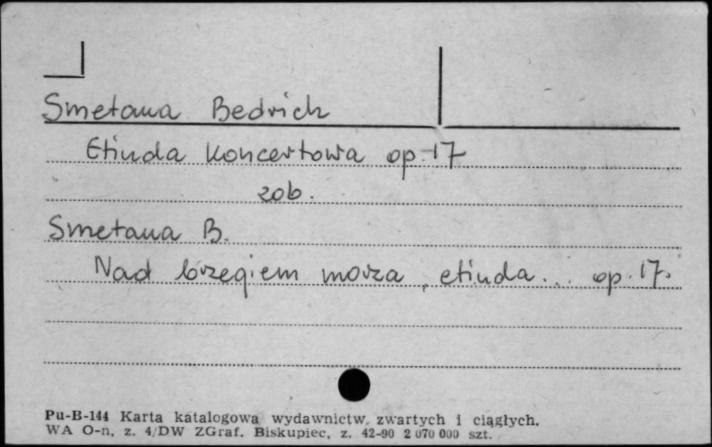 Smetana Bedrich
Etiuda koncertowa op. 17
zob.
Smetana B.
Nad brzegiem morza, etiuda... op. 17.
Pu-B-144 Karta katalogowa wydawnictw zwartych i ciągłych.
WA O-n, z. 4/DW ZGraf. Biskupiec, z. 42-90 2 070 000 szt.